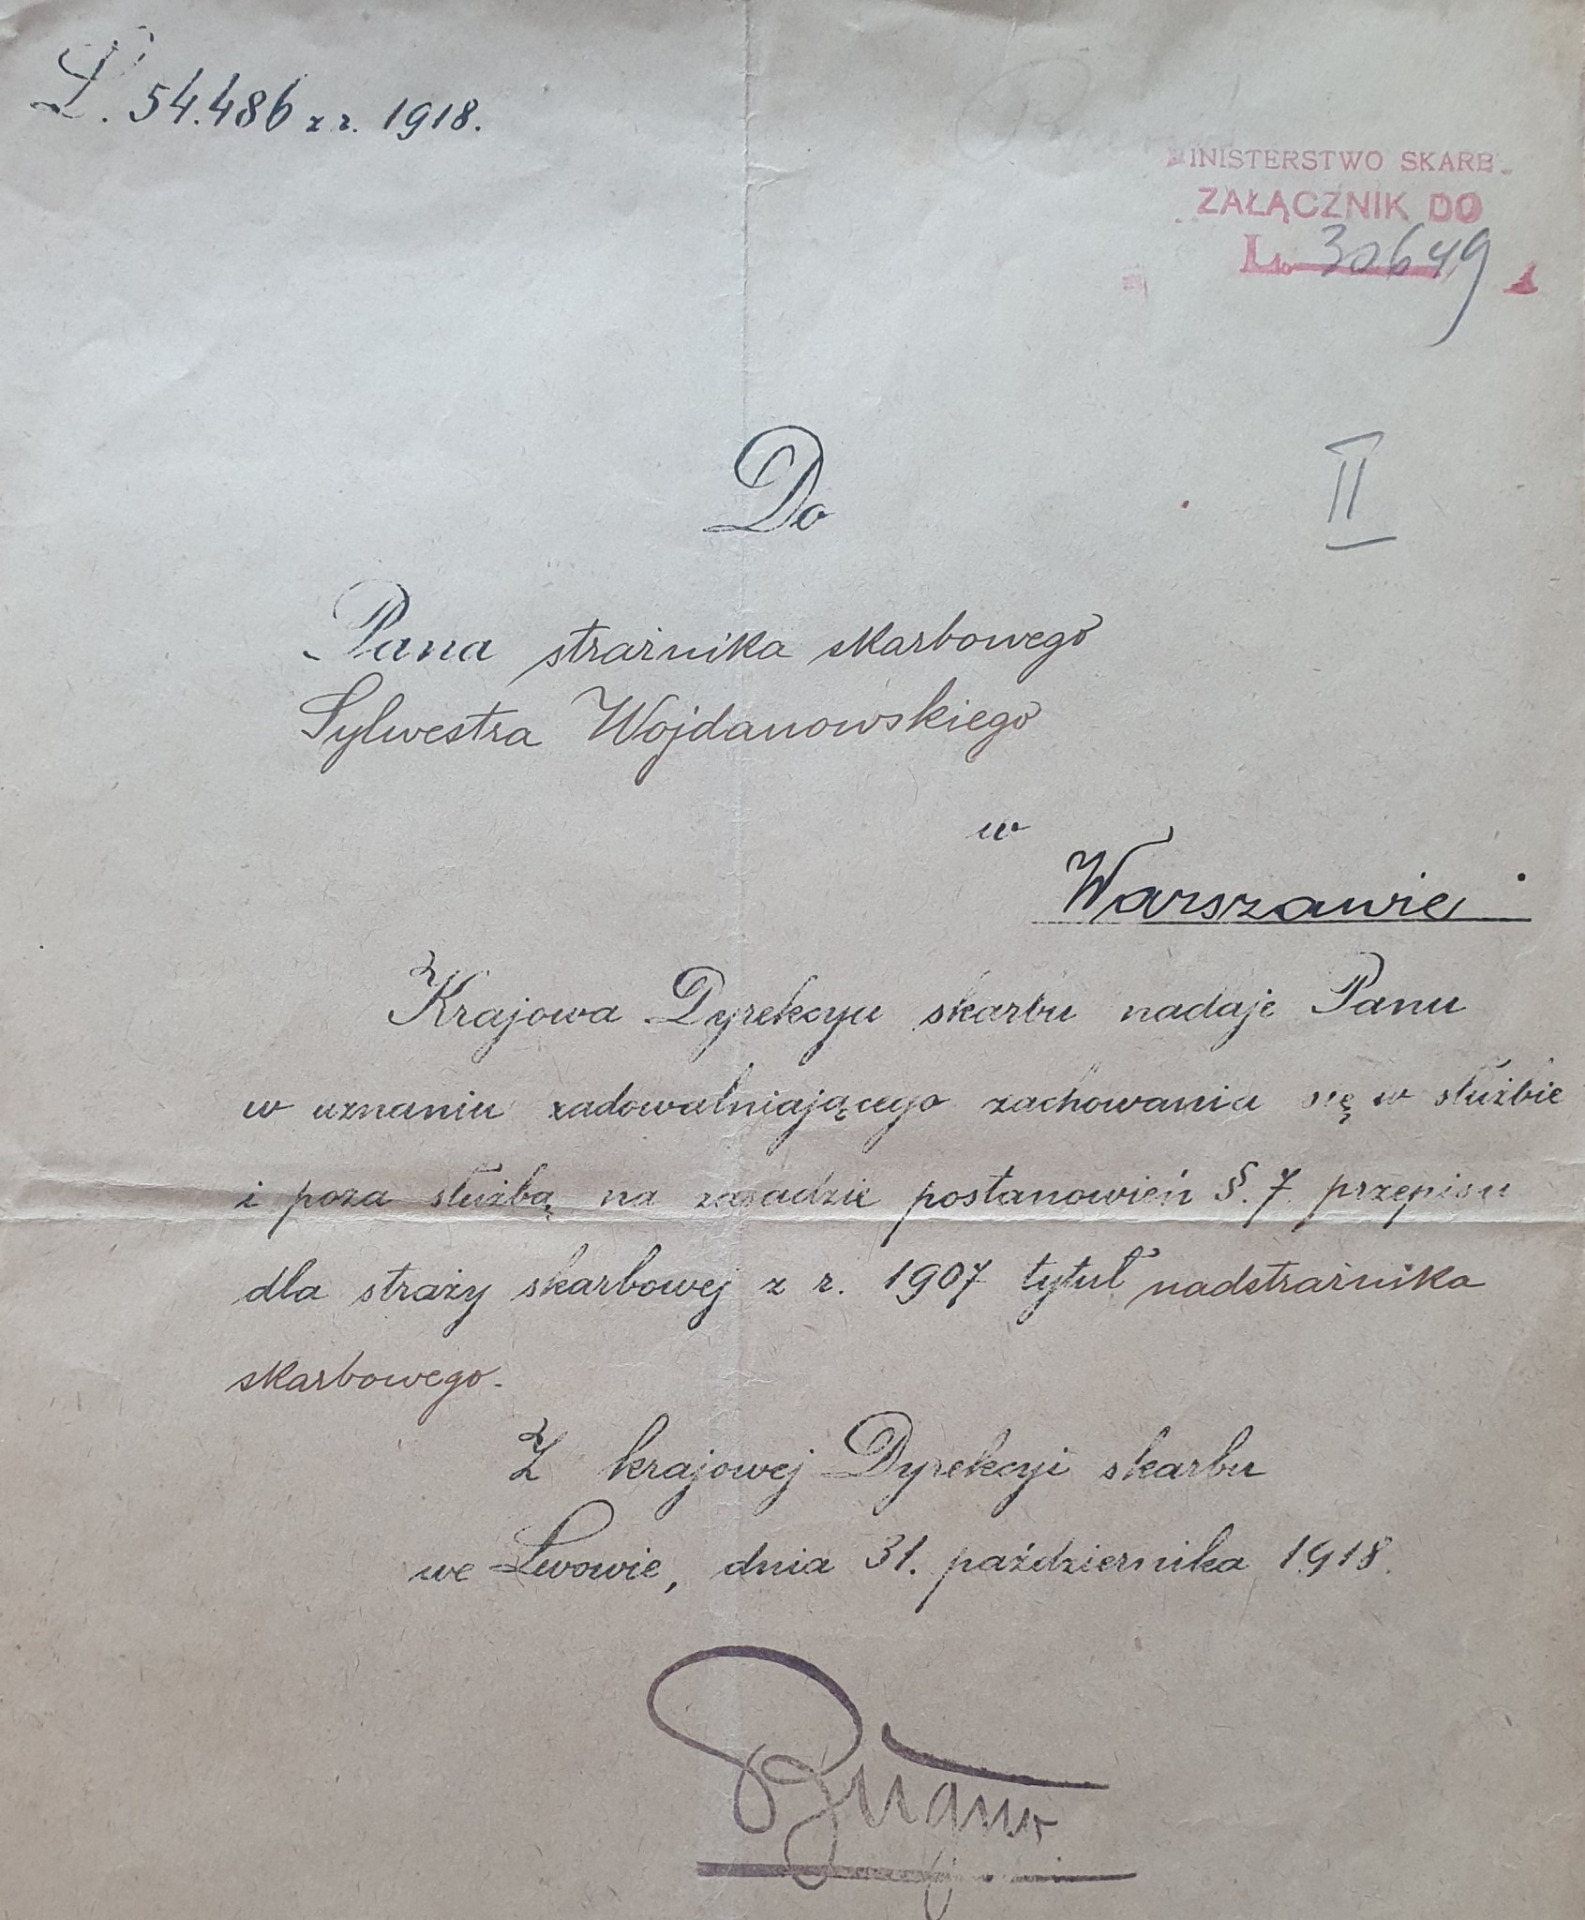 L. 54.486 z r. 1918.
MINISTERSTWO SKARB
ZAŁĄCZNIK DO
L. 30649
II
Do
Pana strażnika skarbowego
Sylwestra Wojdanowskiego
w
Warszawie
Krajowa Dyrekcya skarbu nadaje Panu
w uznaniu zadowalniającego zachowania się w służbie
i poza służbą na zasadzie postanowień §. 7. przepisu
dla straży skarbowej z r. 1907 tytuł nadstrażnika
skarbowego.
Z krajowej Dyrekcyi skarbu
we Lwowie, dnia 31. października 1918.